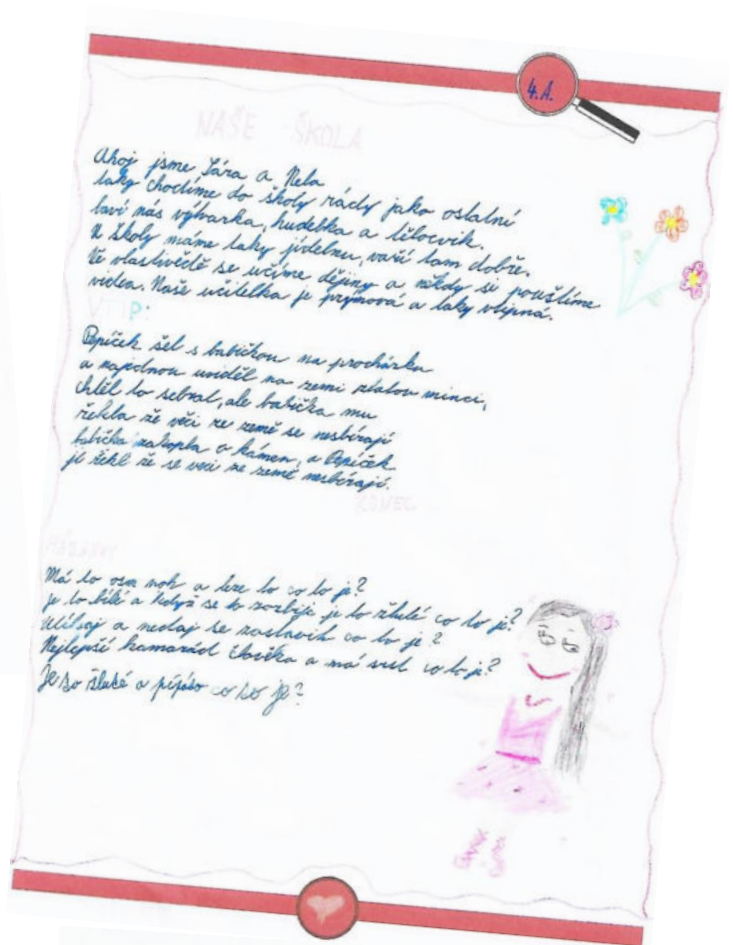 4. A.
NAŠE ŠKOLA
Ahoj jsme Sára a Nela
taky chodíme do školy rády jako ostatní
baví nás výtvarka, hudebka a tělocvik.
U školy máme taky jídelnu, vaří tam dobře.
Ve vlastivědě se učíme dějiny a někdy si pouštíme
videa. Naše učitelka je prýmová a taky vtipná.
VTIP:
Pepíček šel s babičkou na procházku
a najednou uviděl na zemi zlatou minci,
chtěl to sebrat, ale babička mu
řekla že věci ze země se nesbírají
babička zakopla o kámen, a Pepíček
jí řekl že se věci ze země nesbírají.
KONEC
HÁDANKY
Má to osm noh a leze to co to je?
je to bílé a když se to rozbije je to žluté co to je?
Utíkaj a nedaj se zastavit co to je?
Nejlepší kamarád člověka a má srst co to je?
Je to žluté a pípáto co to je?